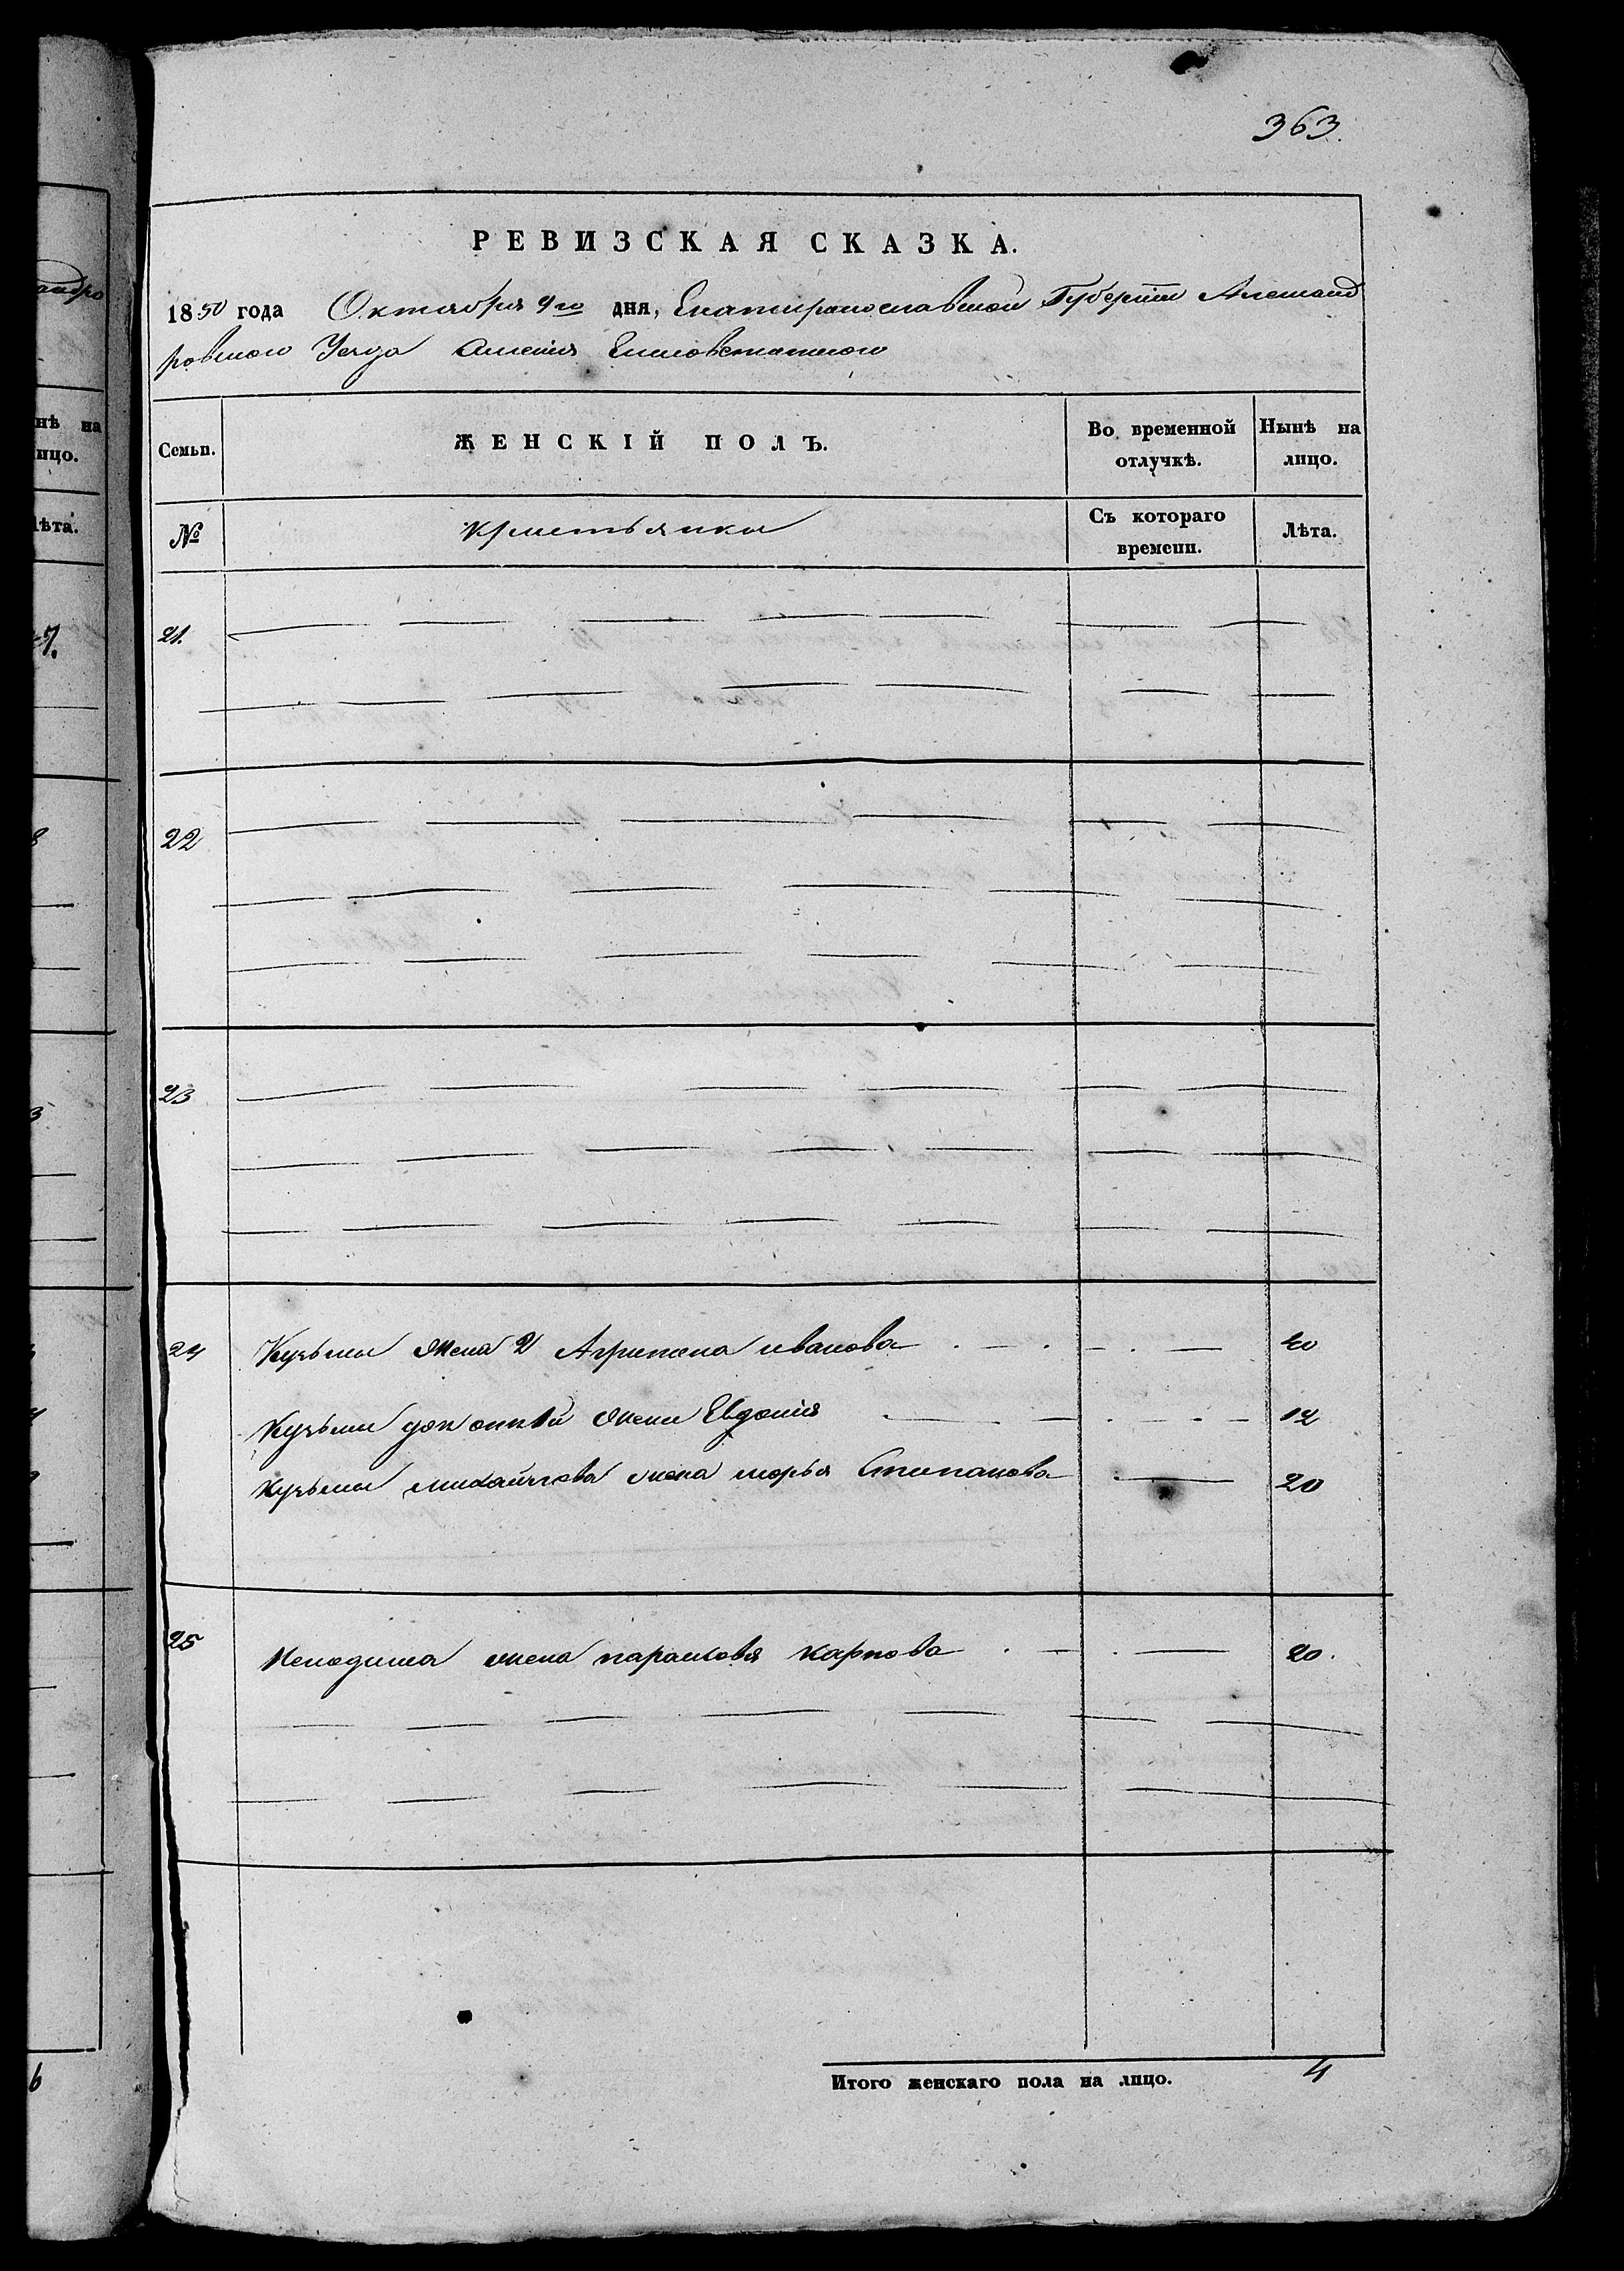 363.
РЕВИЗСКАЯ СКАЗКА.
1850 года Октября 9го дня, Екатиринославской Губернии Александ
ровского Уезда
Семьи. ЖЕНСКІЙ ПОЛЪ. Во временной отлучкѣ. Нынѣ на лицо.
№ Съ котораго времени. Лѣта.
21.
22
23
24 Кузьмы жена 2 Агрипена иванова 40
Кузьмы жени Евдокия 12
Кузьмы михайлова жена марья Стипанова 20
25 жена парасковя карпова 20.
Итого женскаго пола на лицо. 4
нѣ на
лицо.
Лѣта.